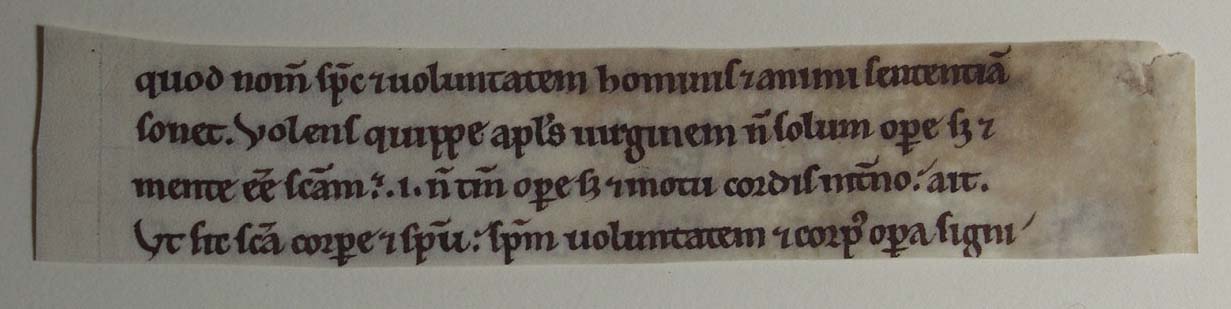 quod nom̄ sp̄c ⁊ uoluntatem hominis ⁊ animi sententiā
sonet. Volens quippe apl's uirginem n̄ solum oꝑe sꝫ ⁊
mente eē̄ scām. .i. n̄ tm̄ oꝑe sꝫ ⁊ motu cordis int̄no. ait.
Vt sit scā corꝑe ⁊ sp̄u: sp̄m uoluntatem ⁊ corpꝰ oꝑa signi